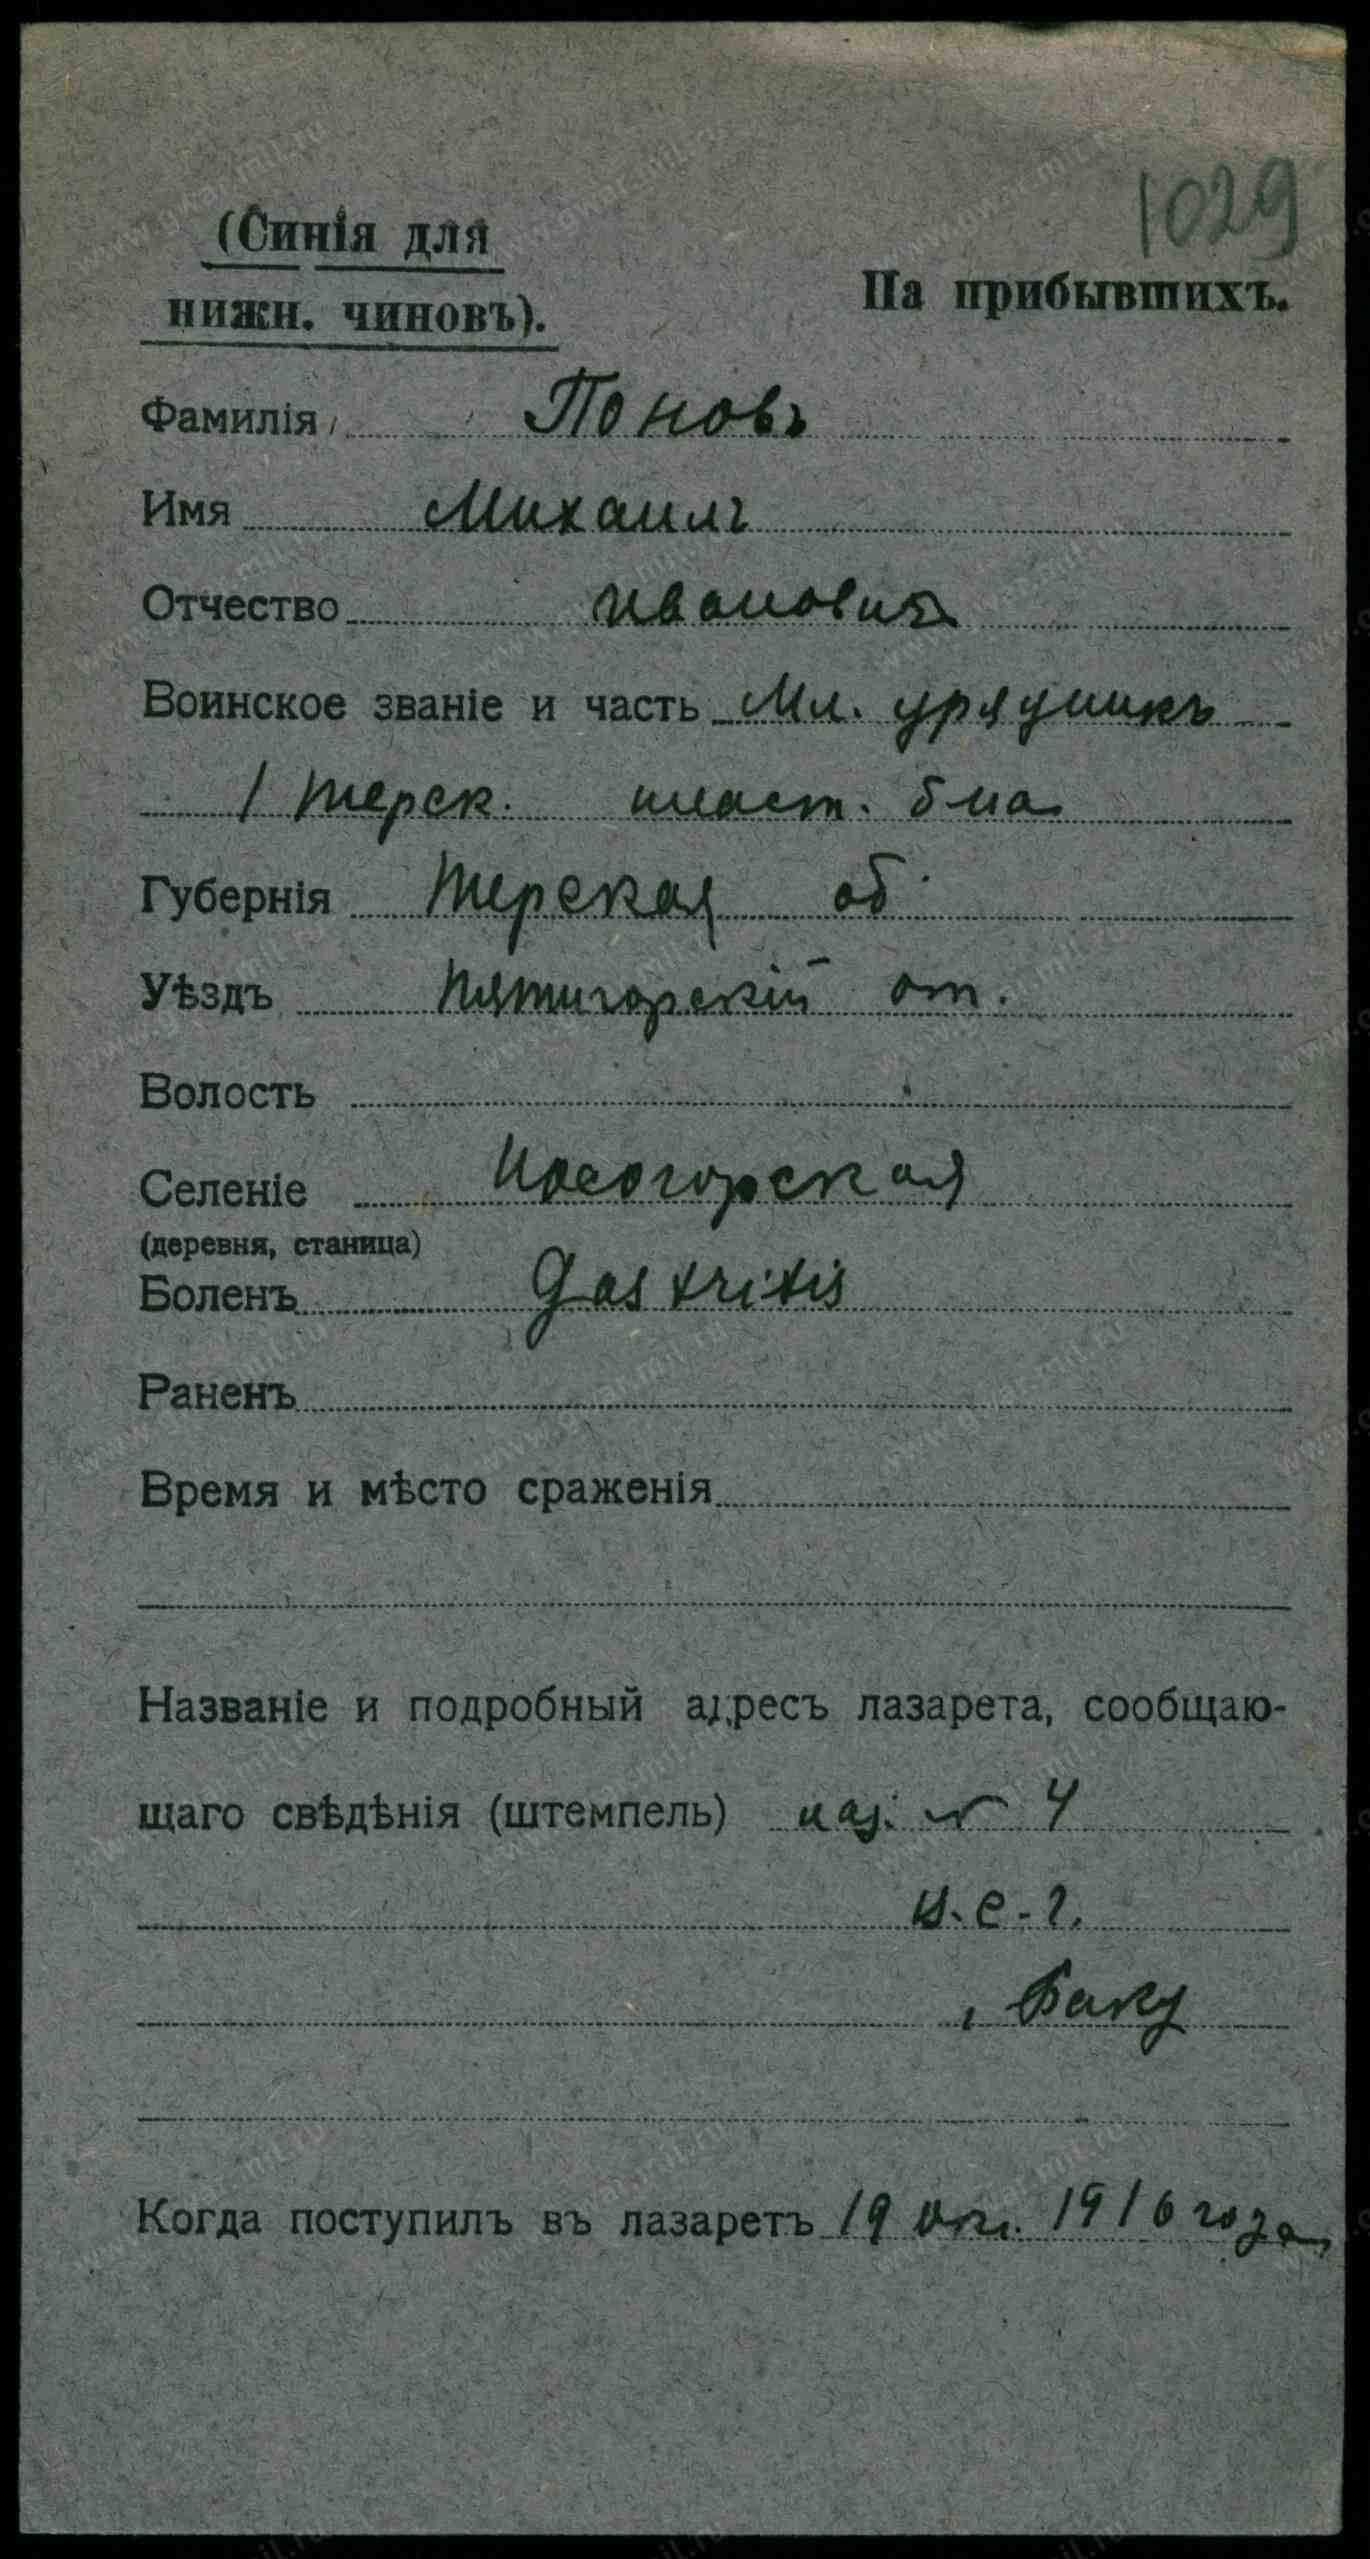 1029
(Синія для
нижн. чиновъ).
На прибывшихъ.
Фамилія Поновъ
Имя Михаилъ
Отчество Ивановичъ
Воинское званіе и часть Мл. урядникъ
1 Терск. пласт. б-на
Губернія Терская об.
Уѣздъ Пятигорскій от.
Волость
Селеніе
(деревня, станица)
Боленъ Gastritis
Раненъ
Время и мѣсто сраженія
Названіе и подробный адресъ лазарета, сообщаю-
щаго свѣдѣнія (штемпель) лаз. № 4
в. с. г.
Баку
Когда поступилъ въ лазаретъ 19 окт. 1916 года
www.gwar.mil.ru